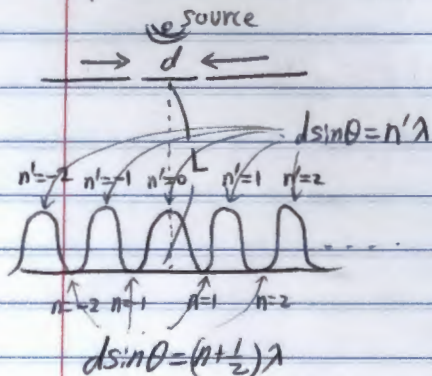 source
d
dsinθ=n'λ
L
n'=-2 n'=-1 n'=0 n'=1 n'=2
n=-2 n=1 n=1 n=2
dsinθ=(n+½)λ